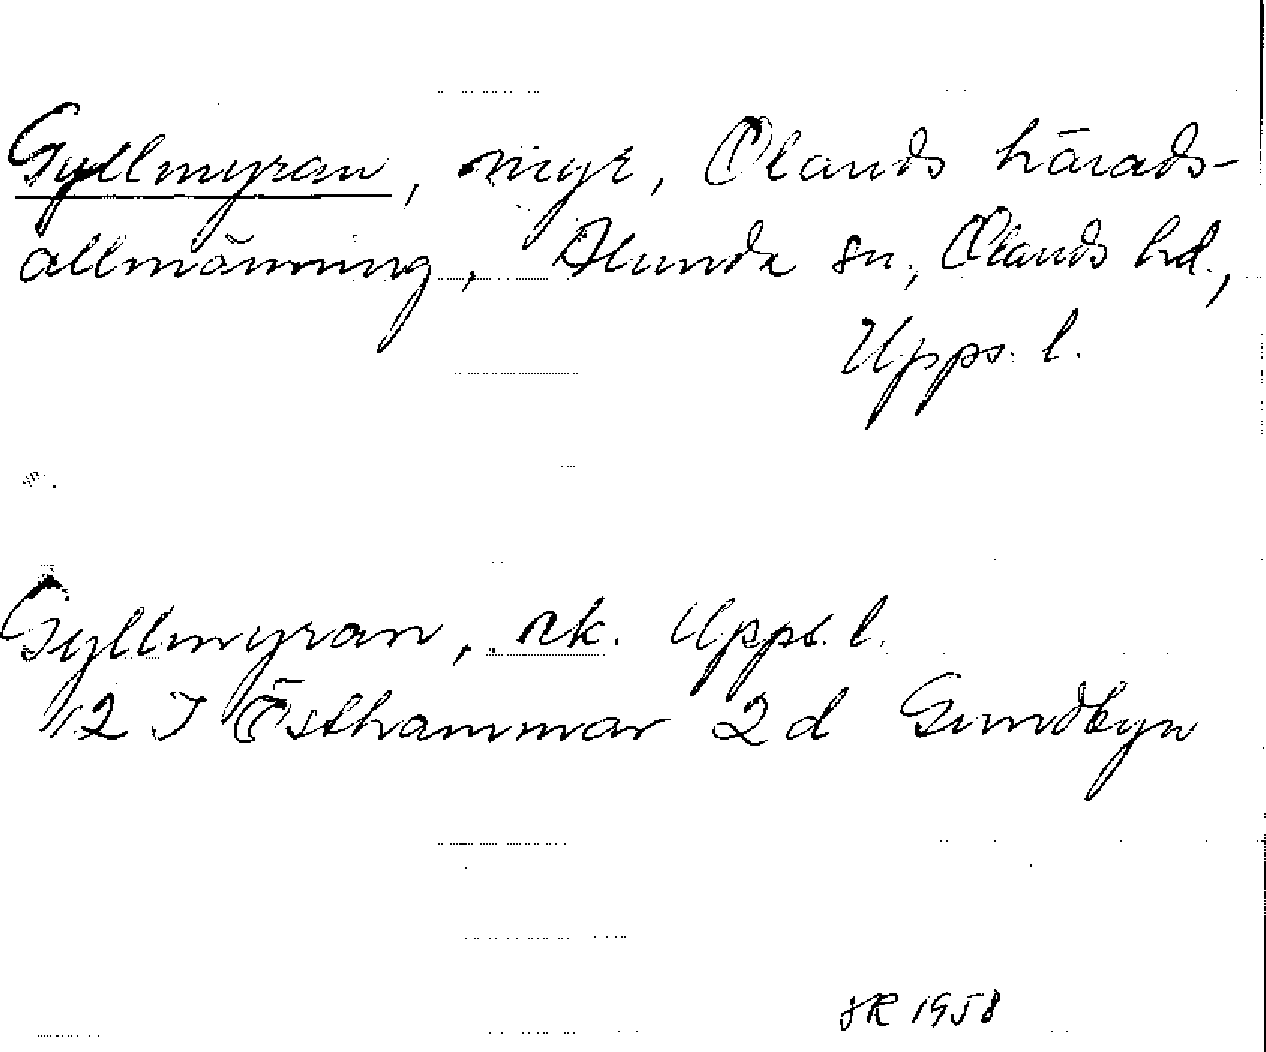 Gyllmyran, myr, Olands härads-
allmänning, Alunda sn, Olands hd.,
Upps. l.
Gyllmyran, ek. Upps. l.
12 I Östhammar 2 d Gundbyn
SR 1958